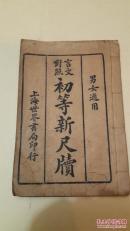 男女適用
言文對照
初等新尺牘
上海世界書局印行